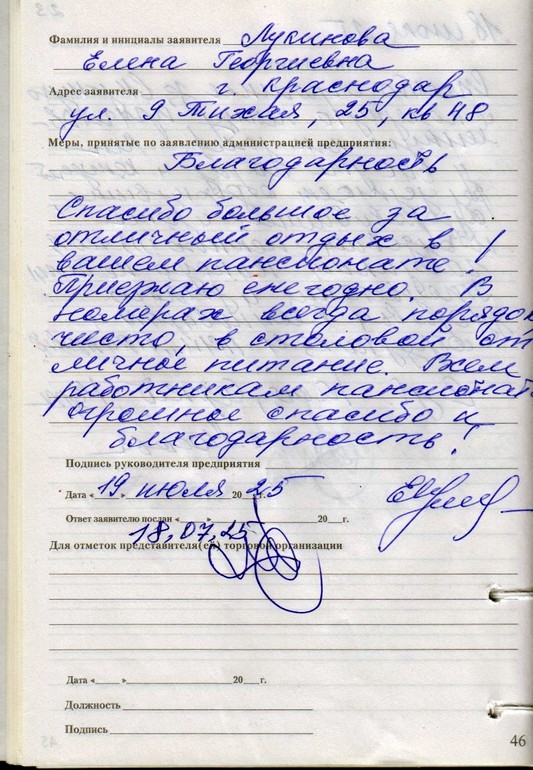 Фамилия и инициалы заявителя Лукинова
Елена Георгиевна
Адрес заявителя г. Краснодар
ул. 9 Тихая, 25, кв 48
Меры, принятые по заявлению администрацией предприятия:
Благодарность
Спасибо большое за
отличный отдых в
вашем пансионате!
Приезжаю ежегодно. В
номерах всегда порядок
чисто, в столовой от
личное питание. Всем
работникам пансионат
огромное спасибо и
благодарность!
Подпись руководителя предприятия
Дата «19» июля 2025
Ответ заявителю послан «___» 20__г.
18.07.25
Для отметок представителя(ей) торговой организации
Дата «___» 20__г.
Должность
Подпись
46